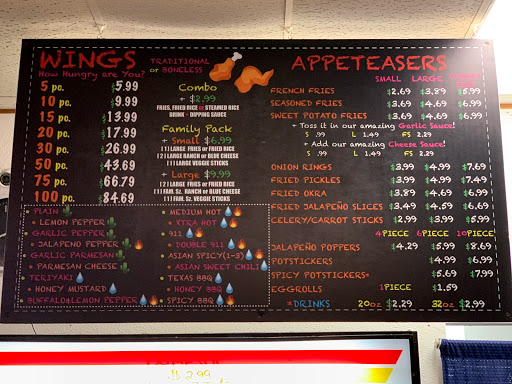 WINGS
TRADITIONAL
or BONELESS
How Hungry are You?
5 pc. $5.99
10 pc. $9.99
15 pc. $13.99
20 pc. $17.99
30 pc. $26.99
50 pc. $43.69
75 pc. $66.79
100 pc. $84.69
Combo
+ $2.99
FRIES, FRIED RICE or STEAMED RICE
DRINK - DIPPING SAUCE
Family Pack
+ Small $6.99
(1) LARGE FRIES or FRIED RICE
(2) LARGE RANCH or BLUE CHEESE
(1) LARGE VEGGIE STICKS
+ Large $9.99
(2) LARGE FRIES or FRIED RICE
(1) FAM. Sz. RANCH or BLUE CHEESE
(1) FAM. Sz. VEGGIE STICKS
PLAIN
LEMON PEPPER
GARLIC PEPPER
JALAPENO PEPPER
GARLIC PARMESAN
PARMESAN CHEESE
TERIYAKI
HONEY MUSTARD
BUFFALO&LEMON PEPPER
MEDIUM HOT
XTRA HOT
911
DOUBLE 911
ASIAN SPICY(1-3)
ASIAN SWEET CHILI
TEXAS BBQ
HONEY BBQ
SPICY BBQ
APPETEASERS
SMALL LARGE
FRENCH FRIES $2.69 $3.89 $5.99
SEASONED FRIES $3.69 $4.69 $6.99
SWEET POTATO FRIES $3.69 $4.69 $6.99
+ Toss it in our amazing Garlic Sauce!
S .99 L 1.49 FS 2.29
+ Add our amazing Cheese Sauce!
S .99 L 1.49 FS 2.29
ONION RINGS $3.99 $4.99 $7.69
FRIED PICKLES $3.99 $4.99 $7.49
FRIED OKRA $3.89 $4.69 $6.99
FRIED JALAPEÑO SLICES $3.49 $4.59 $6.69
CELERY/CARROT STICKS $2.99 $3.99 $5.99
4PIECE 6PIECE 10PIECE
JALAPEÑO POPPERS $4.29 $5.99 $8.69
POTSTICKERS $4.99 $6.99
SPICY POTSTICKERS* $5.69 $7.99
EGGROLLS 1PIECE $1.59
*DRINKS 20oz $2.29 32oz $2.99
2.99